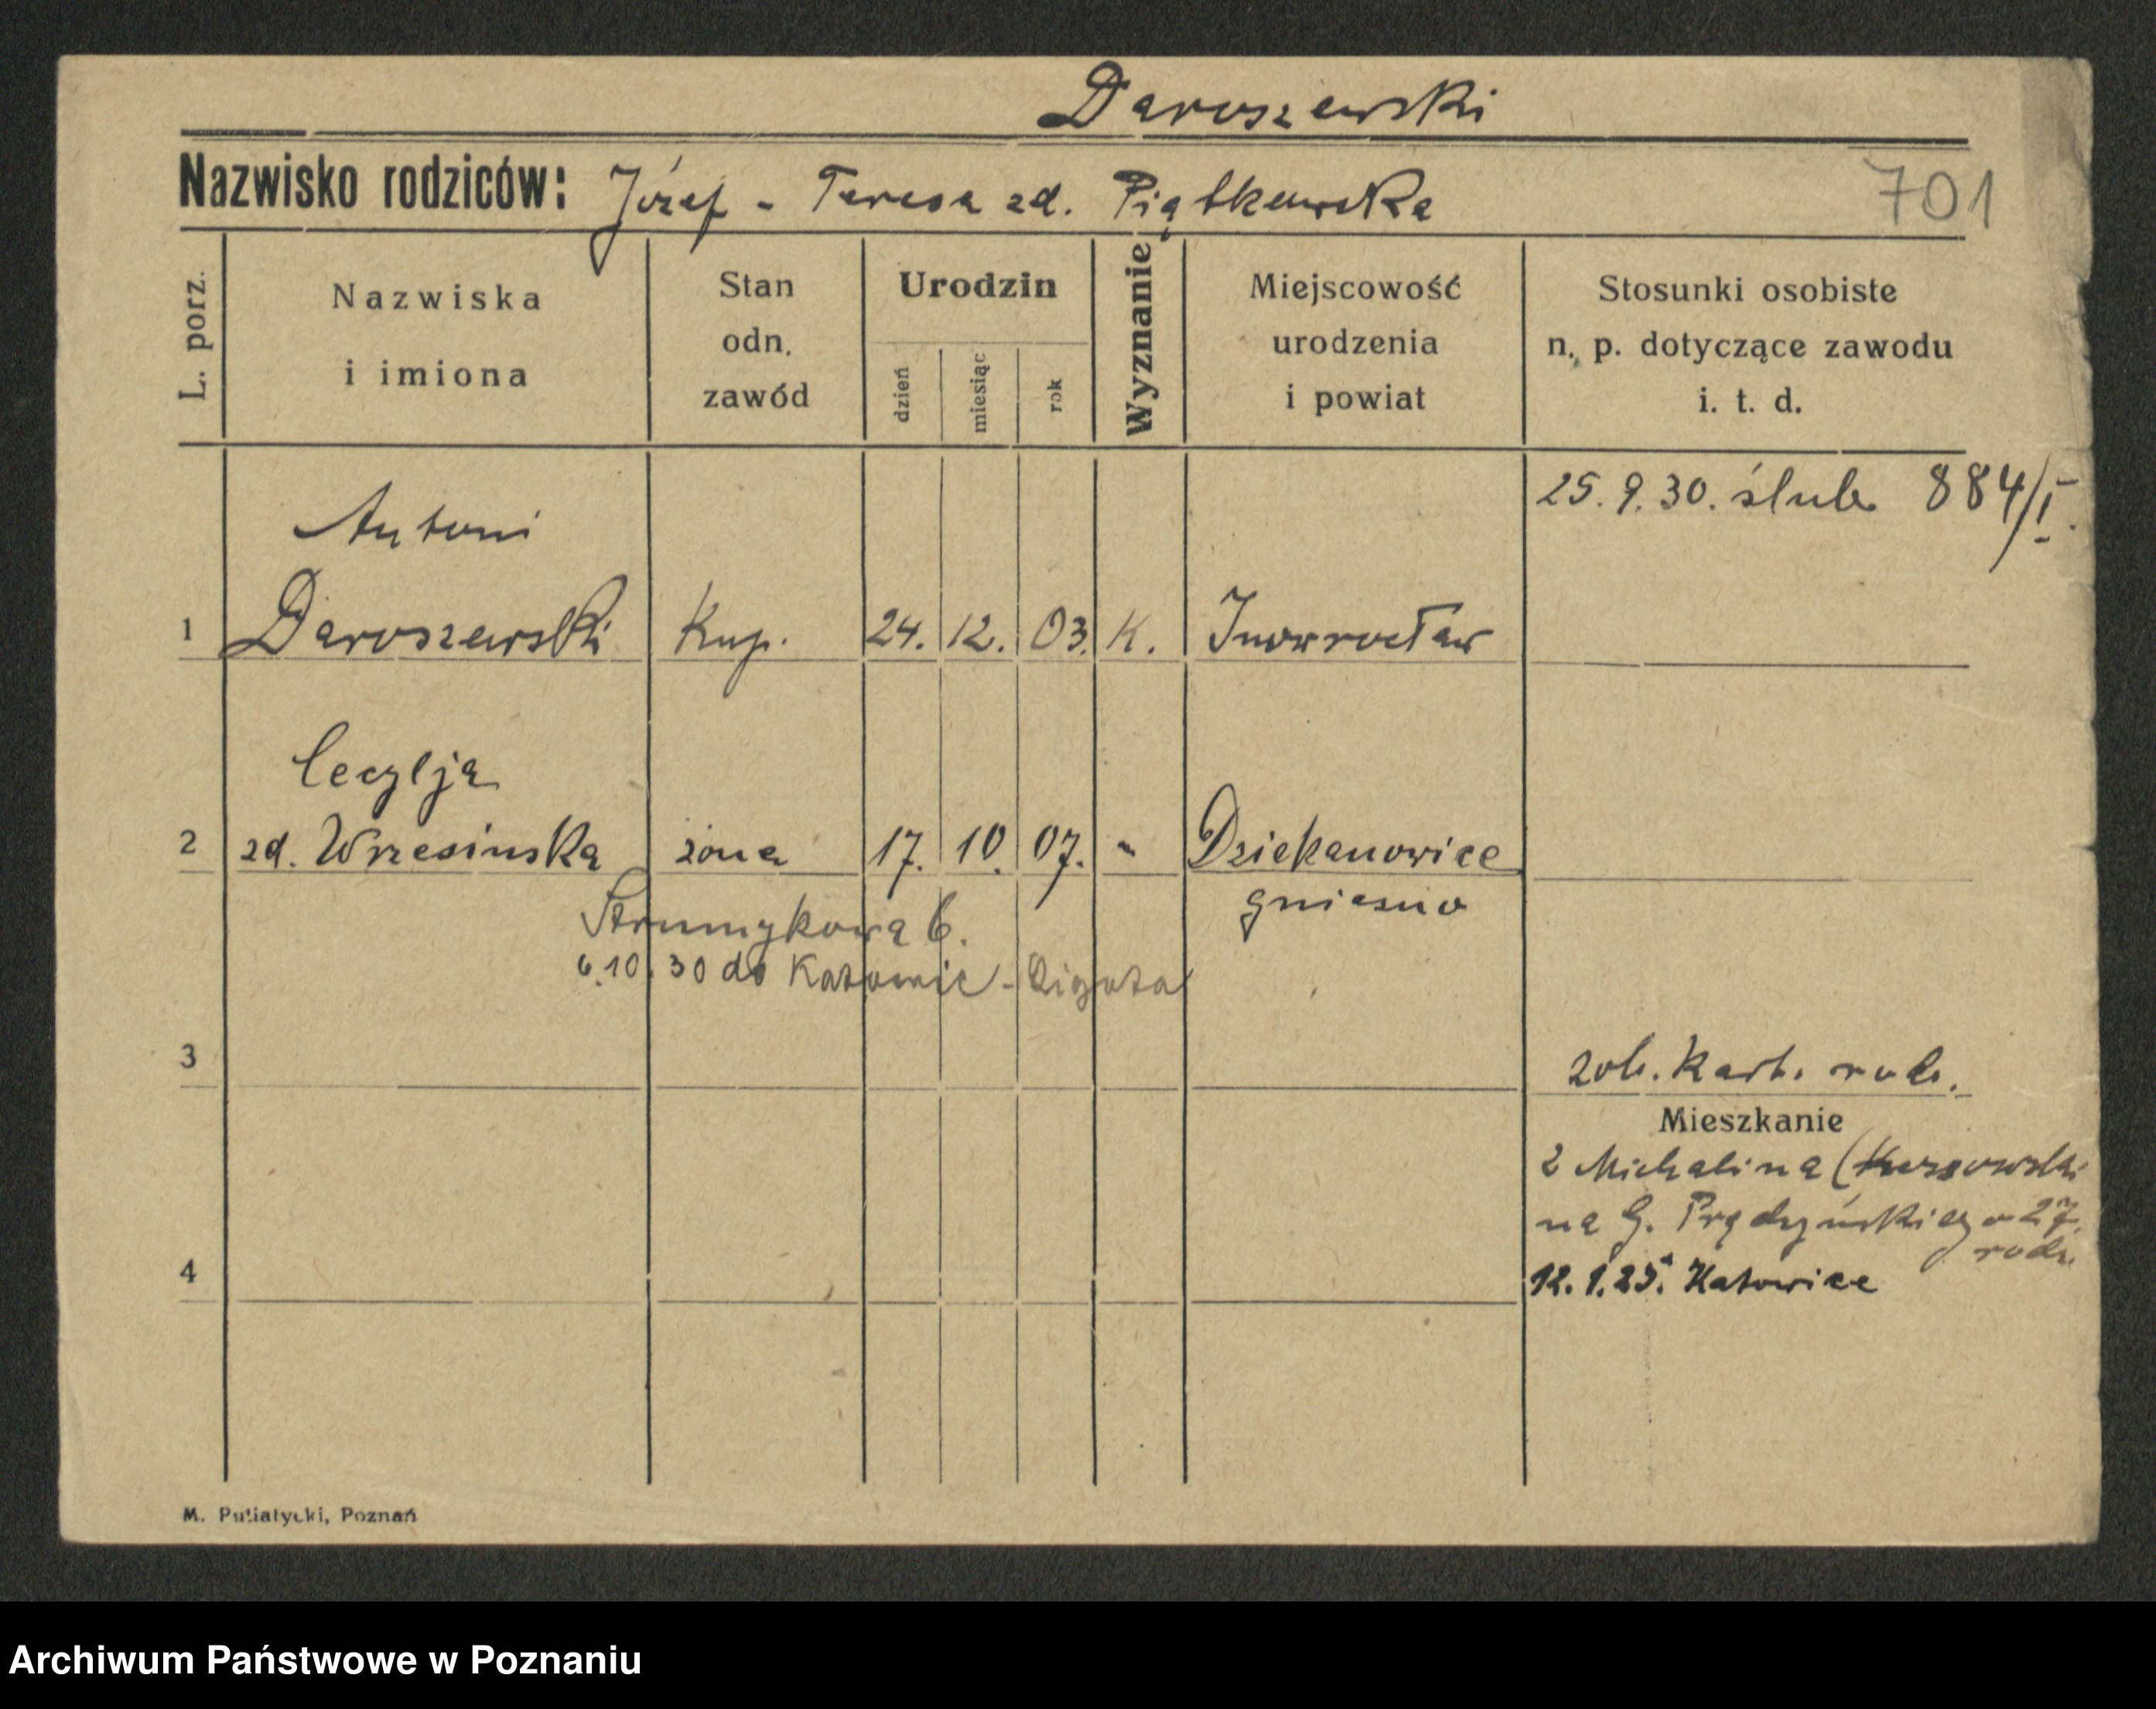 Daroszewski
Nazwisko rodziców: Józef - Teresa zd. Piątkowska
701
L. porz.
Nazwiska
i imiona
Stan
odn.
zawód
Urodzin
dzień
miesiąc
rok
Wyznanie
Miejscowość
urodzenia
i powiat
Stosunki osobiste
n. p. dotyczące zawodu
i. t. d.
25. 9. 30. ślub 884/I.
Antoni
1 Daroszewski Kup. 24. 12. 03. K. Inowrocław
Cecylja
2 zd. Wrzesinska żona 17. 10. 07. " Dziekanowice
gniezno
Strumykowa 6.
6.10.30 do Katowic - Ligota
3
zob. Kart. rodz.
Mieszkanie
2 Michalina
na G. Prądzyńskiego 27.
rodz.
4
12. 1. 25. Katowice
M. Putiatycki, Poznań
Archiwum Państwowe w Poznaniu